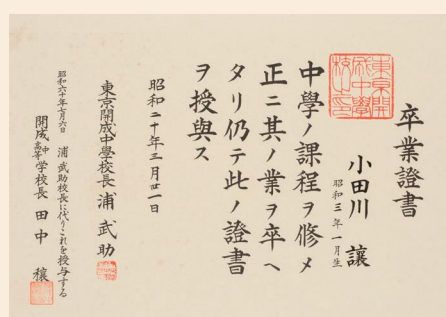 卒業證書
東京開成中學校之印
小田川 讓
昭和三年一月生
中學ノ課程ヲ修メ
正ニ其ノ業ヲ卒ヘ
タリ仍テ此ノ證書
ヲ授與ス
昭和二十年三月廿一日
東京開成中學校長 浦 武助
昭和六十年七月六日 浦 武助校長に代りこれを授与する
開成中高等学校長 田中 穰